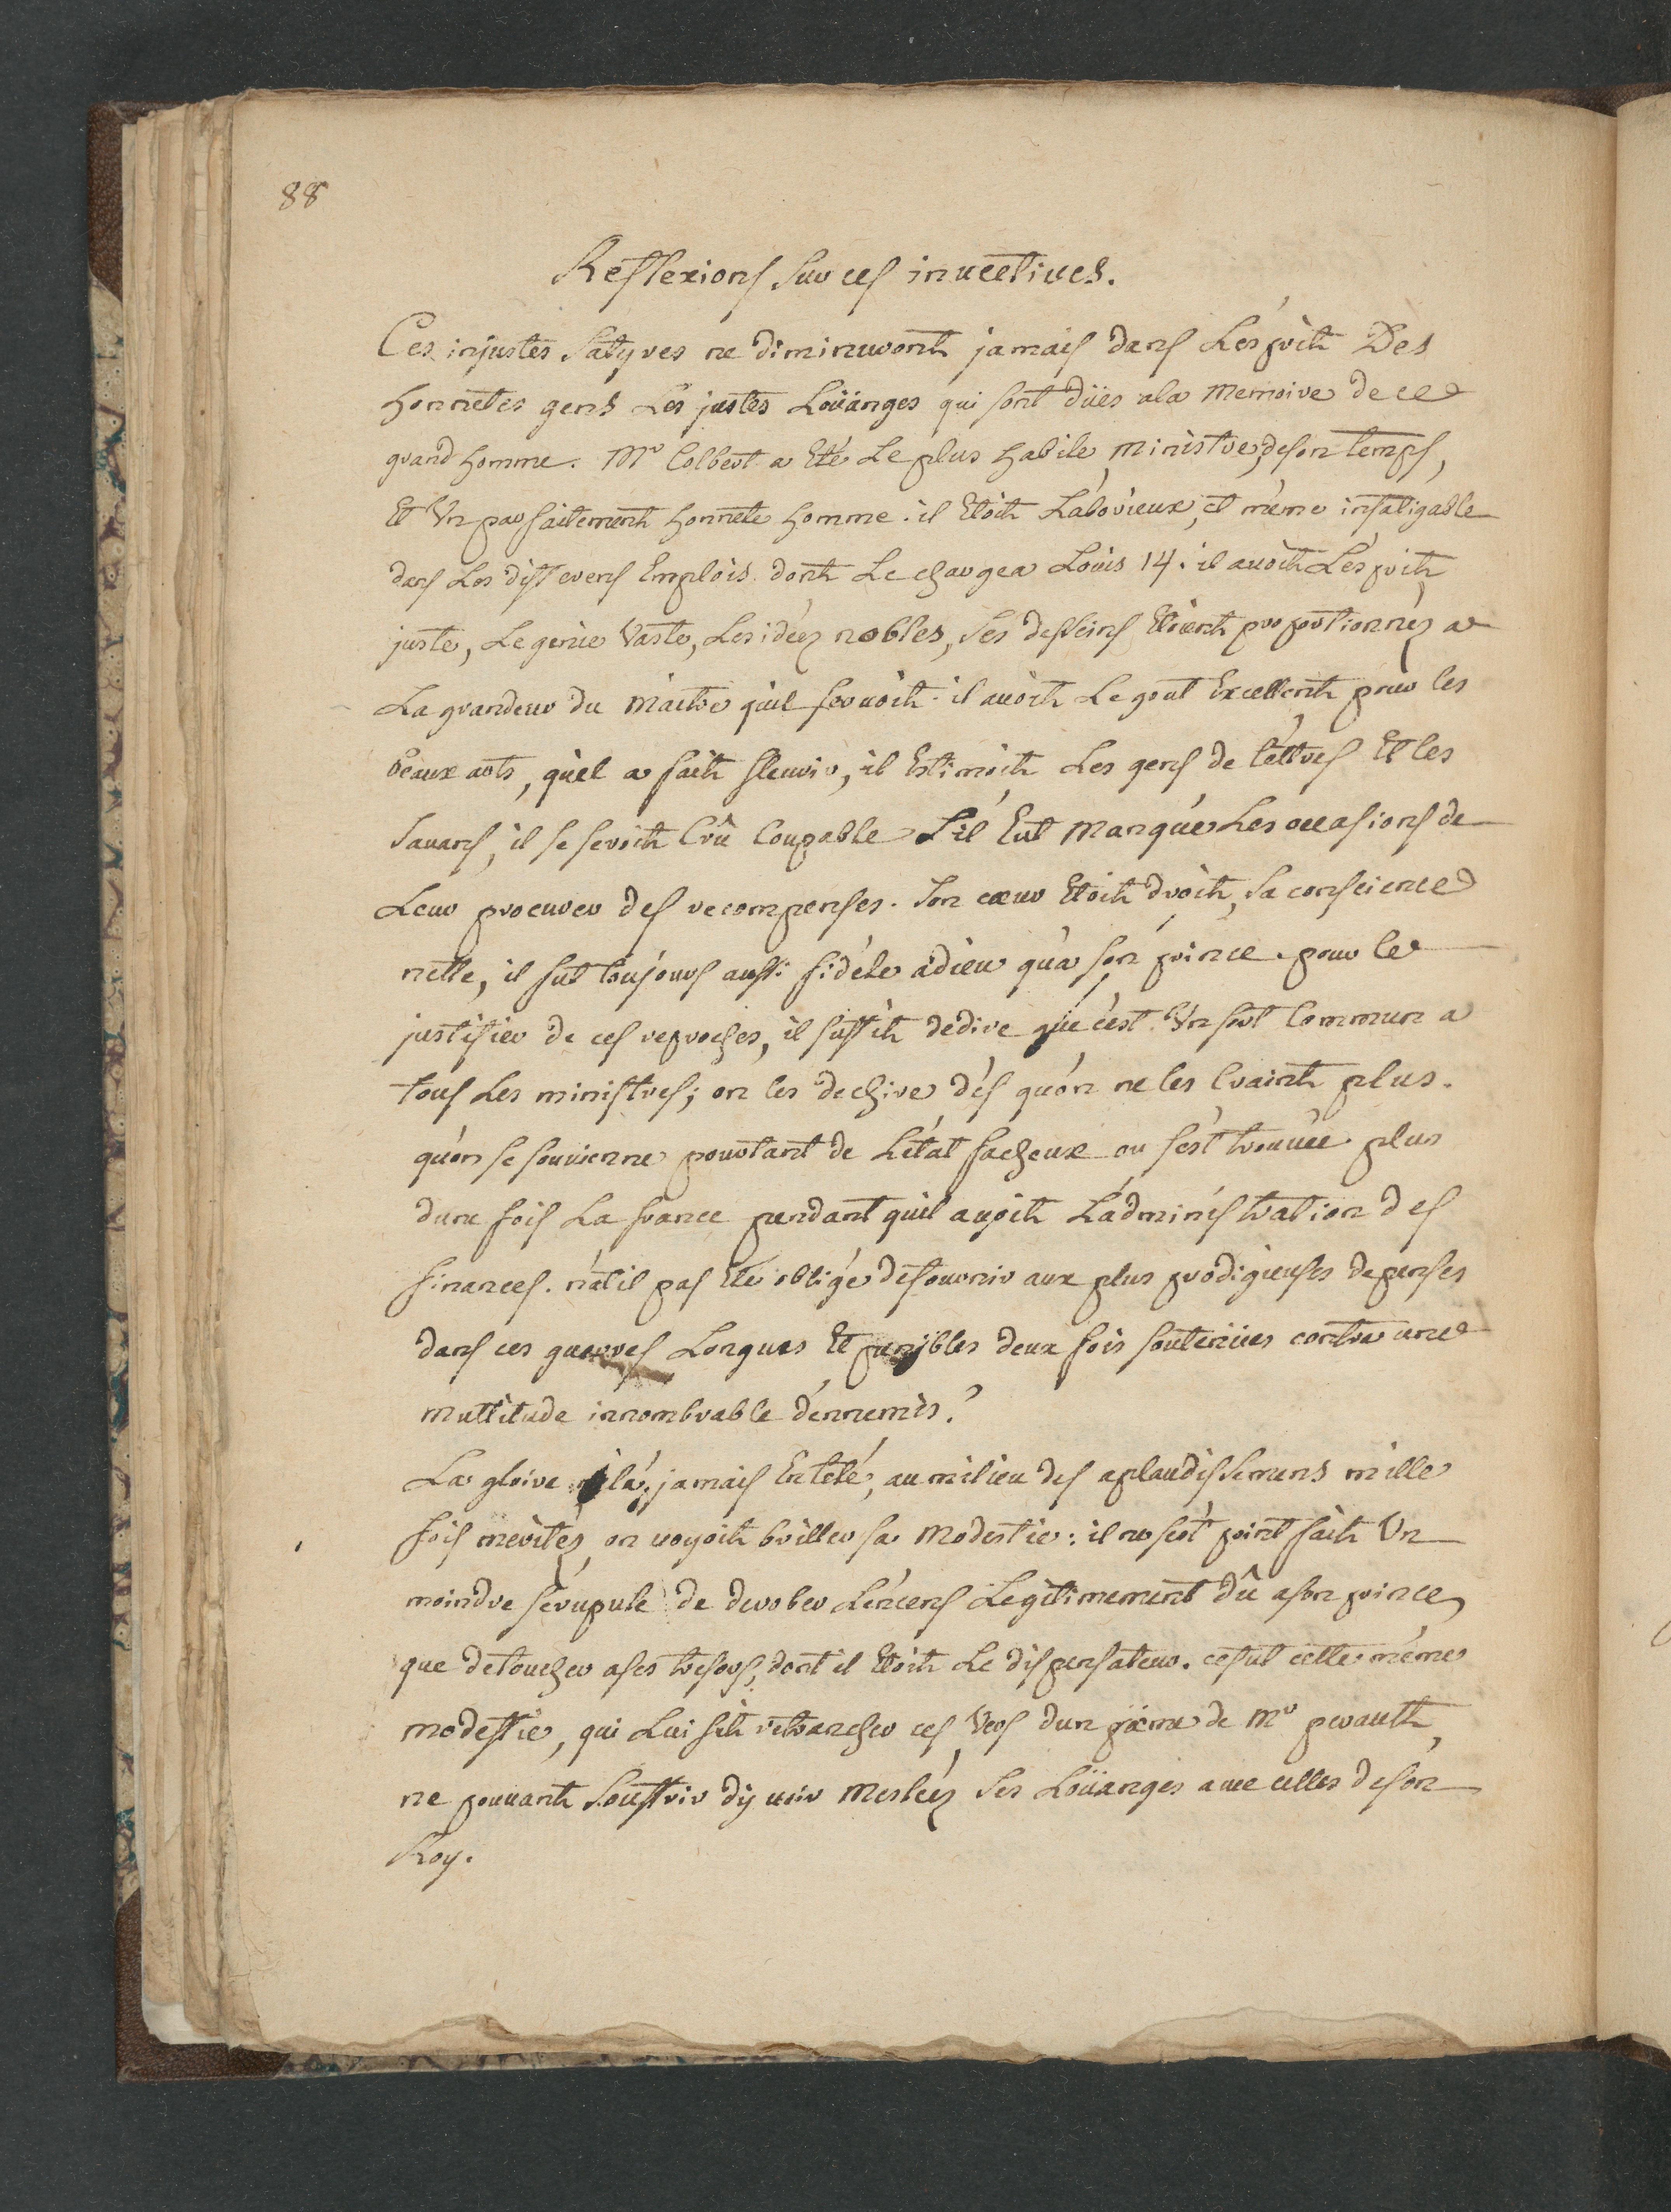 88
Reflexions sur ces invectives.
Ces injustes Satyres ne diminueront jamais dans Lésprit Des
honnêtes gens Les justes Loüanges qui sont düës ala Memoire de ce
grand homme. Mr Colbert a Eté Le plus habile ministre, de son temps,
Et Un parfaitement honnete homme. il Etoit Laborieux, et même infatigable
dans Les differens Emplois dont Le chargea Loüis 14. il avoit Lésprit
juste, Le genie Vaste, Les idées nobles, Ses desseins Etoient proportionnéz a
La grandeur du maitre quil servoit. il avoit Le gout Excellent pour les
beaux arts, quil a fait fleurir, il Estimoit Les gens de léttres Et les
Savans, il se seroit Crû Coupable S'il Eut Manqué Les occasions de
Leur procurer des recompenses. Son cœur Etoit droit, Sa conscience
nette, il fut toujours aussi fidéle a dieu qu'a son prince. pour le
justifier de ces reproches, il suffit de dire que c'est Un sort Commun a
tous Les ministres; on les dechire dés qu'on ne les Craint plus.
qu'on se souvienne pourtant de L'état facheux ou s'est trouvée plus
dune fois La france pendant quil avoit L'administration des
finances. n'atil pas Eté obligé de fournir aux plus prodigieuses depenses
dans ces guerres Longues Et penibles deux fois soutenües contre une
multitude innombrable d'ennemis?
La gloire n la jamais Enteté, au milieu des aplaudissemens mille
fois meritéz, on voyoit briller sa Modestie: il ne s'est point fait Un
moindre scrupule de derober L'encens Legitimement Dû a son prince,
que de toucher a ses tresors, dont il Etoit Le dispensateur. ce fut cette même
modestie, qui Lui fit retrancher ces Vers dun poëme de Mr perault,
ne pouvant Souffrir dÿ voir Mesléez Ses Loüanges avec celles de son
Roy.